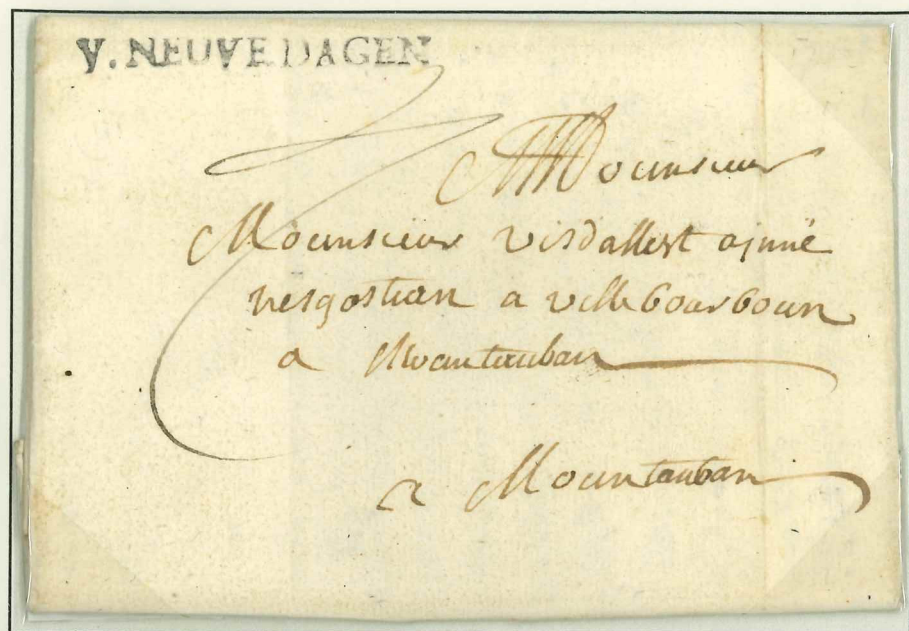 V. NEUVE DAGEN
Mounsieur
Mounsieur visdallest ainné
nesgostian a ville bourboun
a Mountauban
a Mountauban